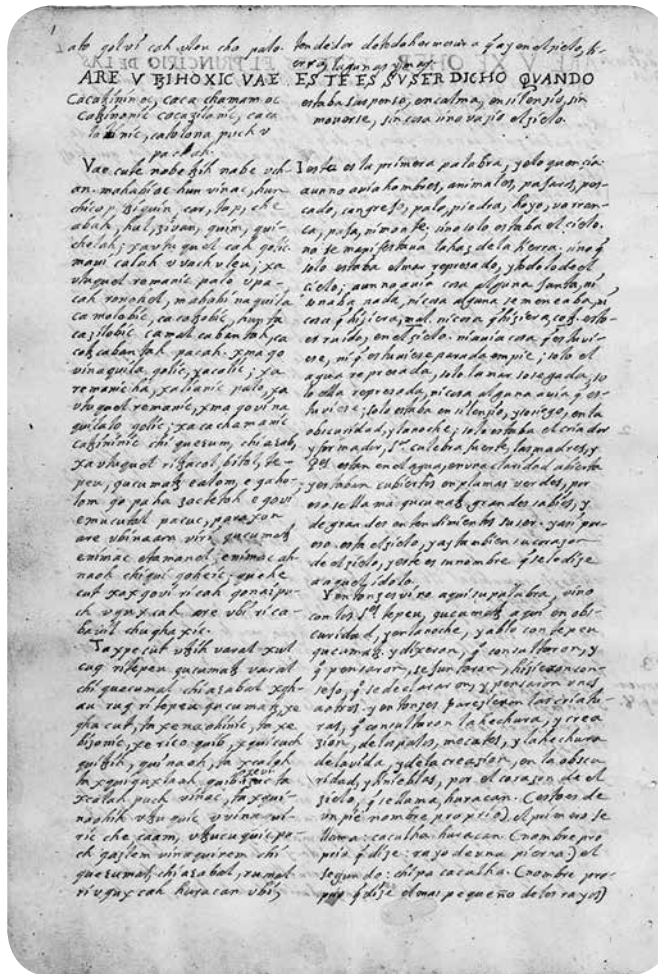 1
ato golvi cah vleu cho palo.
ARE V ꜩIHOXIC VAE
Cacaꜩininoc, caca chamamoc
caꜩinonic cocazilanic, caca
lolinic, catolona puch v
pa cah.
Vae cute nabe ꜩih nabe vch
an. mahabioc hun vinac, hun
chicop, ꜩiquin, car, tap, che
abah, hul, ꜫivan, quim, qui-
chelah; xa vtuquel cah golic
mavi calah v vach vleu; xa
vtuquel remanic palo vpa-
cah ronohel, mahabi naquila
camolobic, cacoꜩobic, hunta
cazilobic camal cabantah, ca
coꜩ cabantah pacah. xma go
vinaquila, golic, yacolic; xa
remanic ha, xaliania palo, xa
vtuquel remanic, xma govi na
quilalo golic; xa cachamanic
caꜩininic chi quecum, chi aꜫab,
xa vtuquel ri ꜩacol, bitol, te-
peu, qucumaꜩ ealom, e qaho-
lom go pa ha ꜩactetoh e govi,
e mucutal pa cuc, pa raxon
are vbinaam viri qucumaꜩ
enimac etamanel; enimac ah
naoh chi qui goheic; quehe
cut xax govi ri cah gonaipu-
ch vqux cah are vbi ri ca-
bavil chughaxic.
Ta xpe cut vꜩih varal xul
cuq ri tepeu qucumaꜩ varal
chi quecumal chi aꜫabal xqh-
au ruq ri tepeu qucumaꜩ, xe
gha cut, ta xe naohinic, ta xe
biꜫonic, xe rico quib, xquicuch
qui ꜩih, quinaoh, ta xcalah
ta xqui quxlaah quib xevi
ta xcalah puch vinac, ta xqui
naohih vꜩuquic v vina qui-
ric che caam, vꜩucuquic pu-
ch gazlem vinaquirem chi
quecumal, chi aꜫabal, rumal
ri vqux cah huracan vbiꜩ
tendedor de todo hermosura q̃ ay en el çielo, ti-
erra, lagunas y mar.
ESTE ES SV SER DICHO QUANDO
estaba suspenso, en calma, en silençio, sin
moverse, sin cosa sino vaçio el çielo.
I esta es la primera palabra, y eloquençia:
aun no avia hombres, animales, paxaros, pes-
cado, cangrejo, palo, piedra, hoyo, varran-
ca, paja, ni monte, sino solo estaba el cielo.
no se manifestaua la haz de la tierra. sino q̃
solo estaba el mar represado, y todo lo de el
çielo; aun no avia cosa alguna junta, ni
sonaba nada, ni cosa alguna se meneaba, ni
cosa q̃ hiziera, mal. ni cosa q̃ hiziera, coꜩ. esto
es ruido, en el çielo. ni avia cosa q̃ estuvi-
ese, ni q̃ estuviese parada en pie; solo el
agua represada, solo la mar sosegada, so
lo ella represada, ni cosa alguna avia q̃ es-
tuviese; solo estaba en silençio, y sosiego, en la
obscuridad, y la noche; solo estaba el criador
y formador, sr. culebra fuerte, las madres, y
Pes. estan en el agua, en una claridad abierta
y estaban cubiertos en plumas verdes, por
eso se llama qucumaꜩ. grandes sabios, y
de grandes entendimientos su ser. y asi por
eso. esta el çielo, y ay tambien su corazon
de el çielo, y este es su nombre q̃ se lo dize
a aquel idolo.
Y entonses vino aqui su palabra, vino
con los Ss. tepeu, qucumaꜩ aqui en obs-
curidad, y en la noche, y ablo con tepeu
qucumaꜩ. y dixeron, q̃ consultaron, y
q̃ pensaron, se juntaron, hizieron con-
sejo, q̃ se declararon, y pensaron unos
a otros. y entonses parezieron las criatu-
ras, q̃ consultaron la hechura, y crea
zion, de los palos, mecates, y la hechura
de la vida, y de la creazion, en la obscu-
ridad, y tinieblas, por el corazon de el
zielo, q̃ se llama, huracan. (esto es de
un pie nombre proprio). el primero se
llama: caculha huracan. (nombre pro
prio q̃ dize: rayo de una pierna) el
segundo: chipa caculha. (nombre pro-
prio q̃ dize el mas pequeño de los rayos)